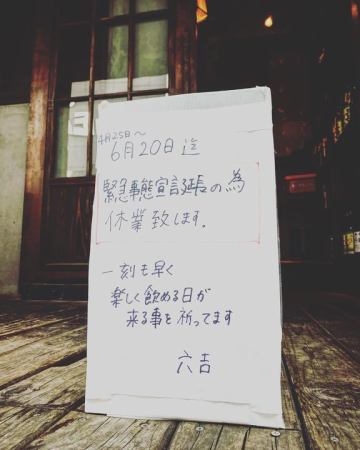 4月25日〜
6月20日迄
緊急事態宣言延長の為
休業致します。
一刻も早く
楽しく飲める日が
来る事を祈ってます
六吉